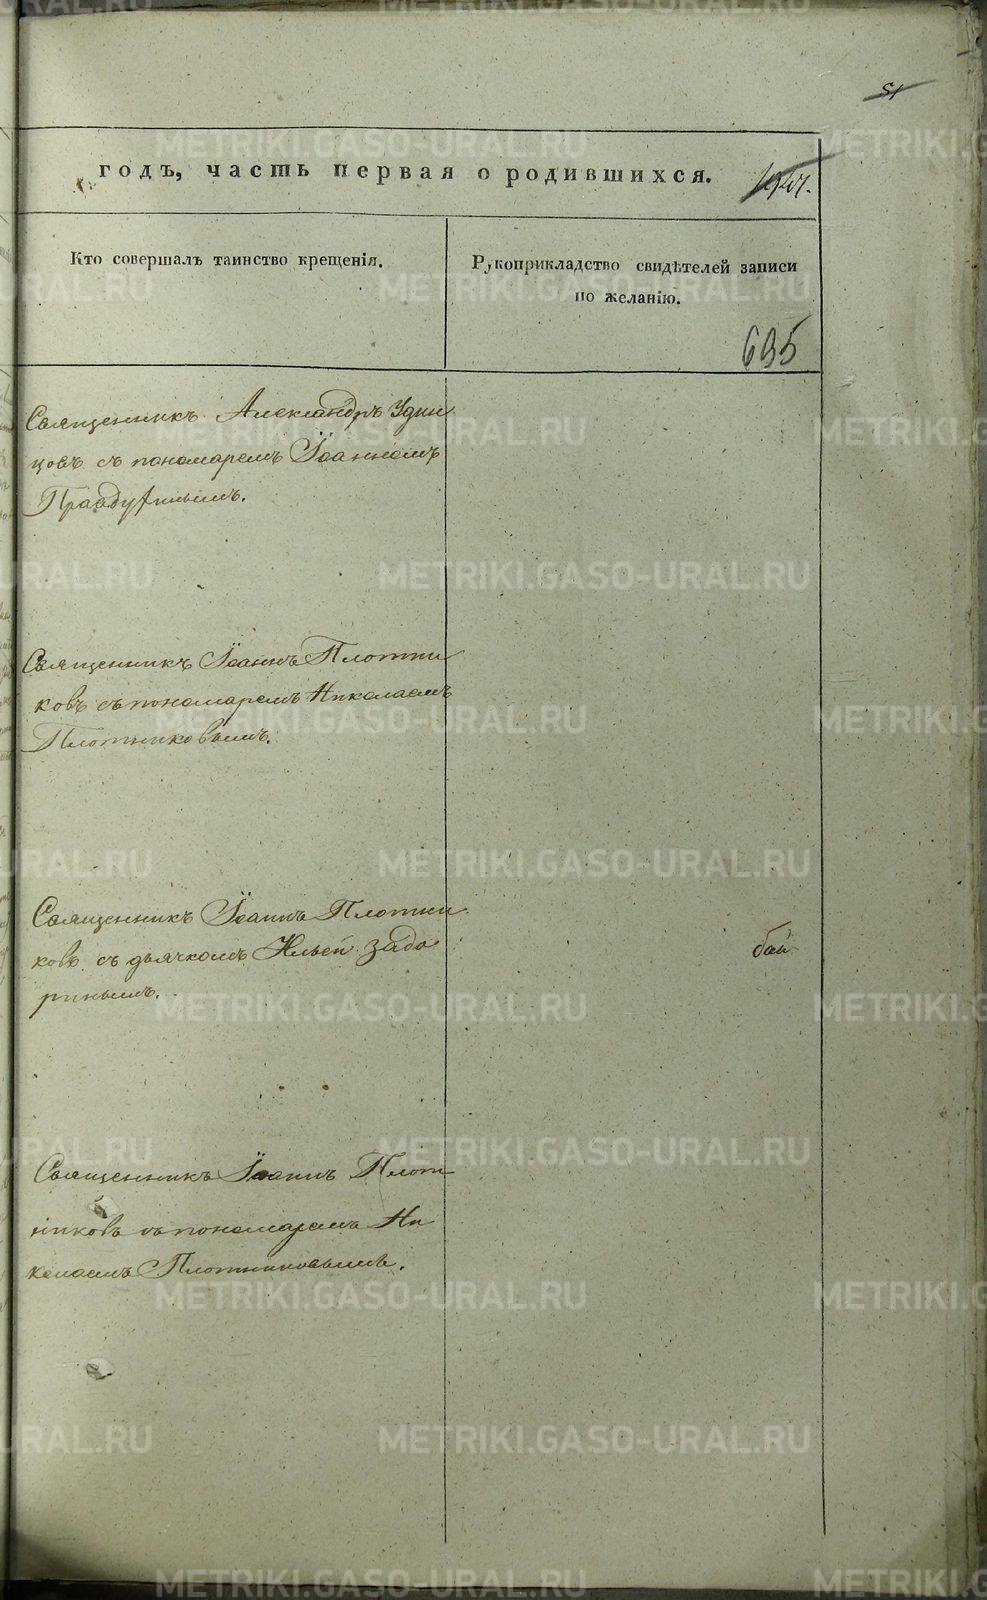 51
годъ, часть первая о родившихся.
Кто совершалъ таинство крещенія.
Рукоприкладство свидѣтелей записи
по желанію.
695
Священникъ Александръ Удин
цовъ съ пономаремъ Іоанномъ
Правдухинымъ.
Священникъ Іоаннъ Плотни
ковъ съ пономаремъ Николаемъ
Плотниковымъ.
Священникъ Іоаннъ Плотни
ковъ съ дьячкомъ Ильей Задо
ринымъ.
Священникъ Іоаннъ Плот
никовъ съ пономаремъ Ни
колаемъ Плотниковымъ.
METRIKI.GASO-URAL.RU